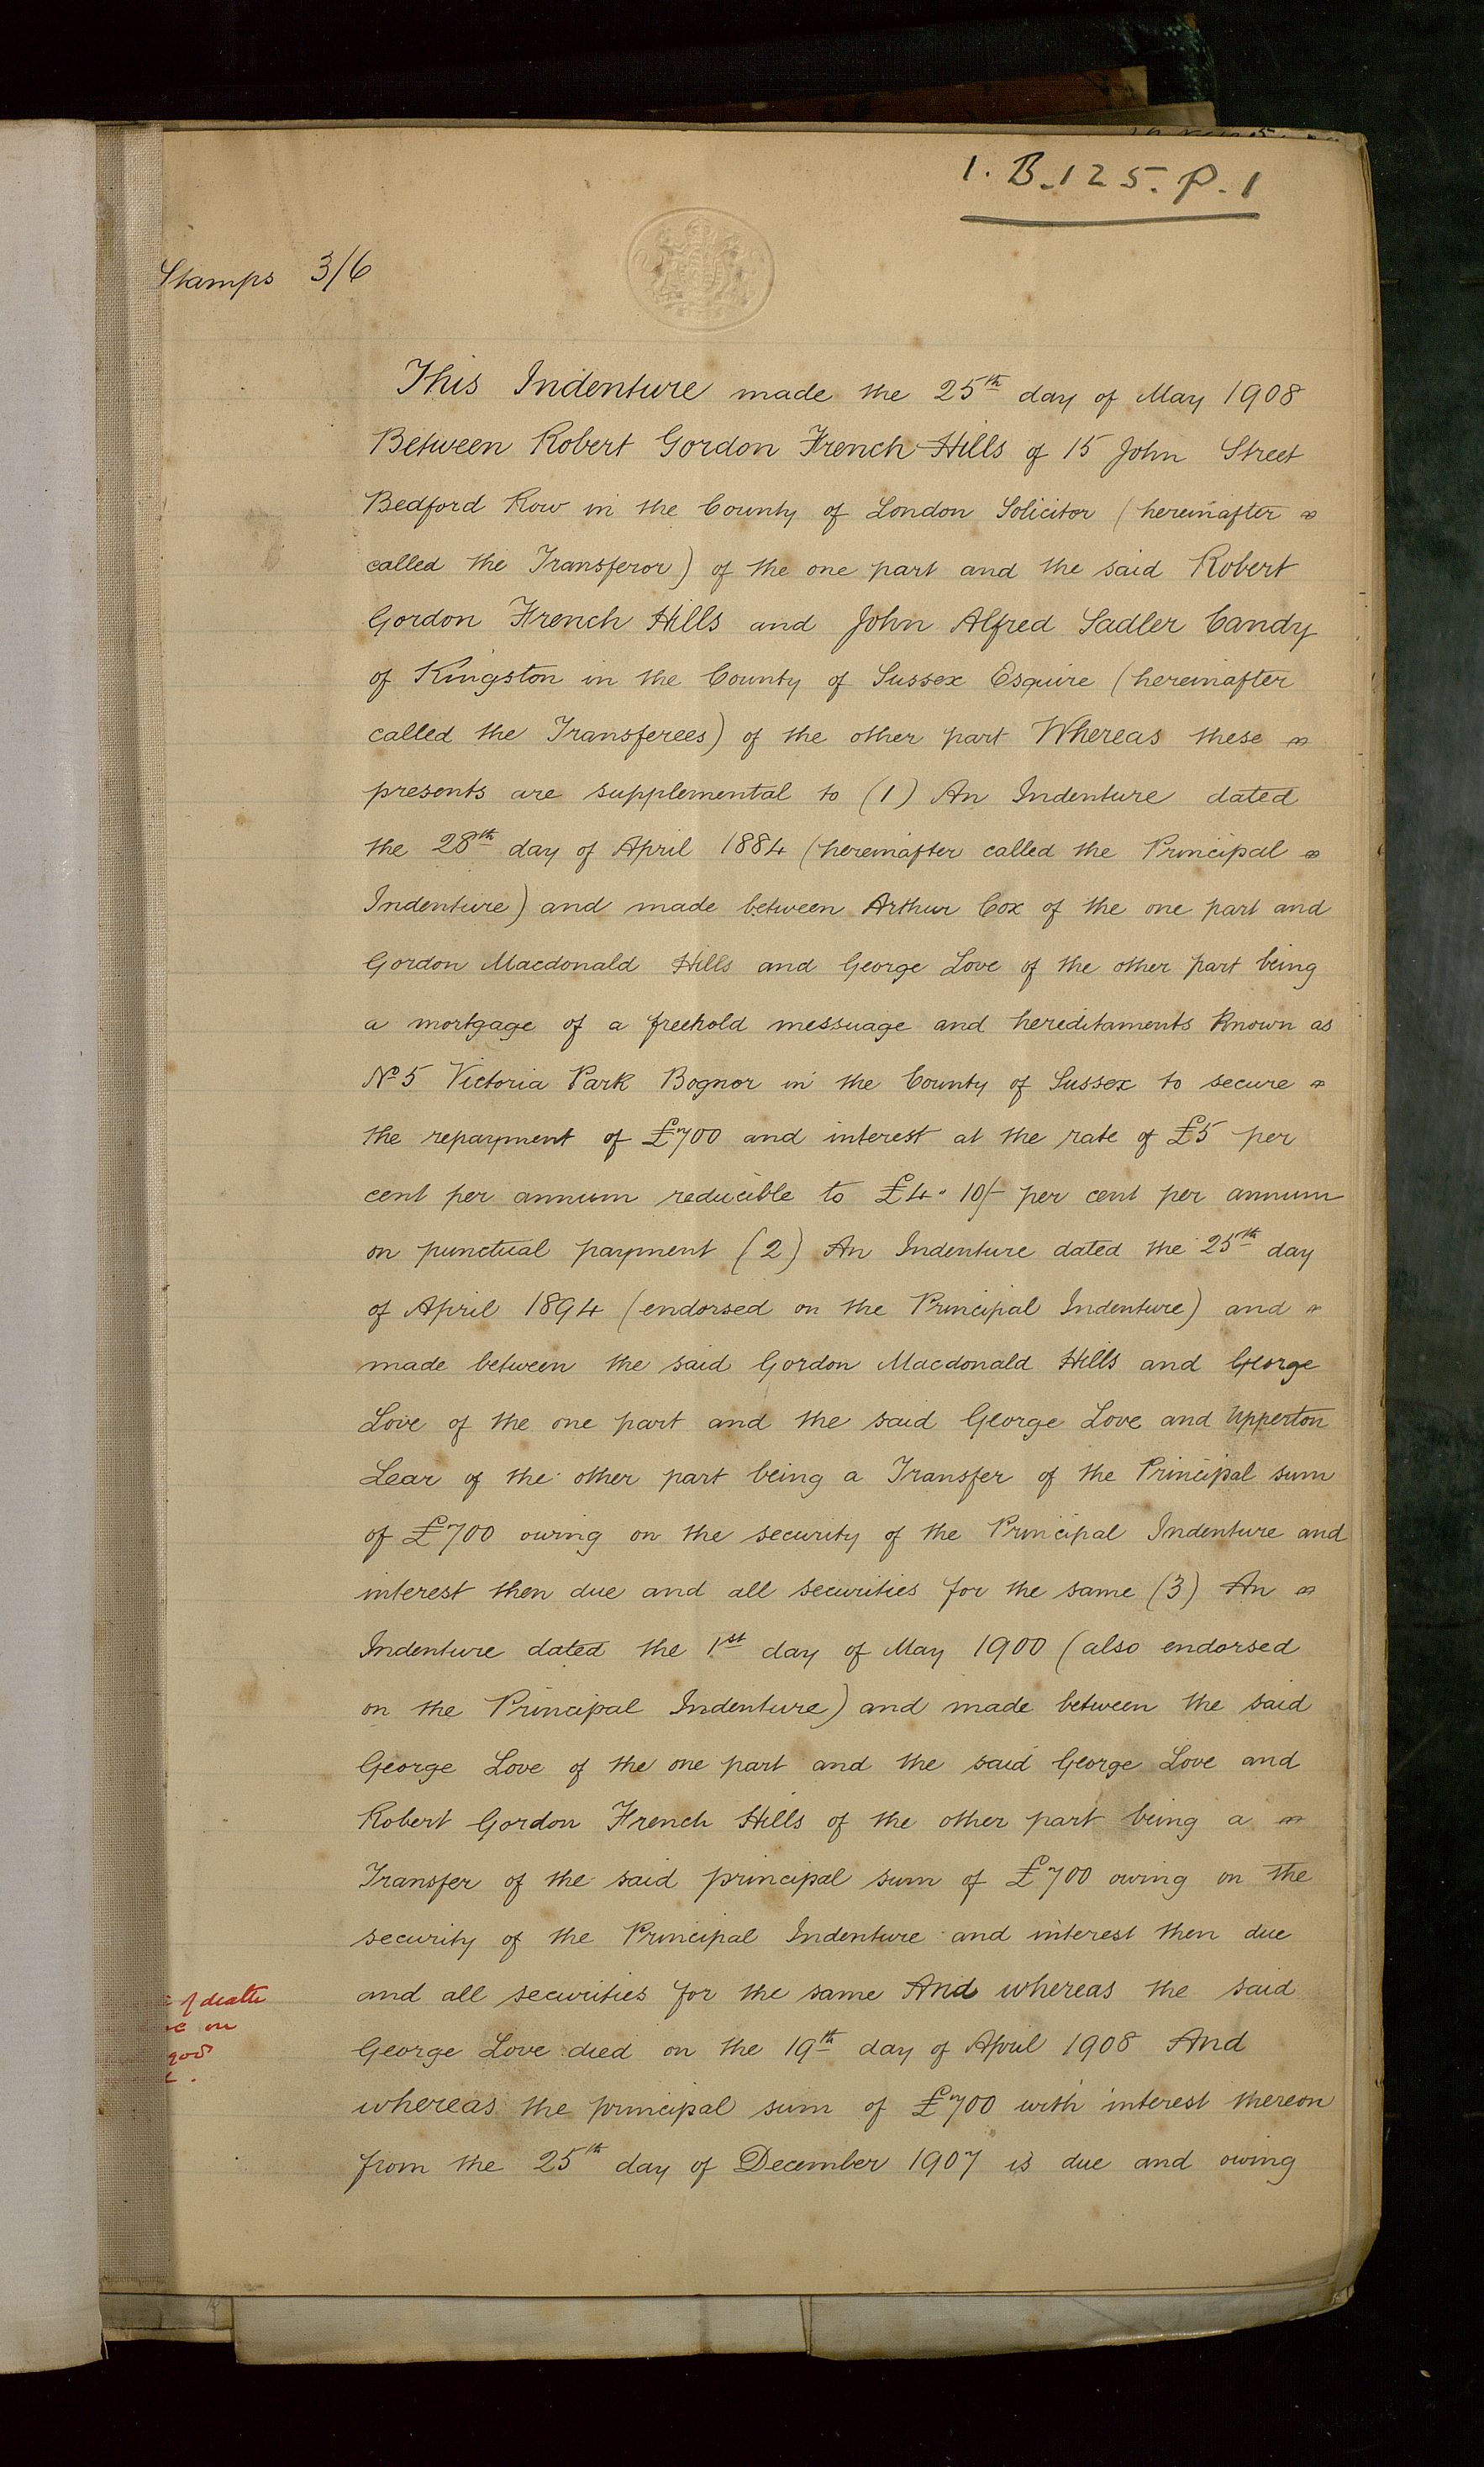 1. B. 125. P. 1
Stamps 3/6
This Indenture made the 25th day of May 1908
Between Robert Gordon French Hills of 15 John Street
Bedford Row in the County of London Solicitor (hereinafter
called the Transferor) of the one part and the said Robert
Gordon French Hills and John Alfred Sadler Candy
of Kingston in the County of Sussex Esquire (hereinafter
called the Transferees) of the other part Whereas these
presents are supplemental to (1) An Indenture dated
the 28th day of April 1884 (hereinafter called the Principal
Indenture) and made between Arthur Cox of the one part and
Gordon Macdonald Hills and George Love of the other part being
a mortgage of a freehold messuage and hereditaments known as
No 5 Victoria Park Bognor in the County of Sussex to secure
the repayment of £700 and interest at the rate of £5 per
cent per annum reducible to £4" 10/- per cent per annum
on punctual payment (2) An Indenture dated the 25th day
of April 1894 (endorsed on the Principal Indenture) and
made between the said Gordon Macdonald Hills and George
Love of the one part and the said George Love and Upperton
Lear of the other part being a Transfer of the Principal sum
of £700 owing on the security of the Principal Indenture and
interest then due and all securities for the same (3) An
Indenture dated the 1st day of May 1900 (also endorsed
on the Principal Indenture) and made between the said
George Love of the one part and the said George Love and
Robert Gordon French Hills of the other part being a
Transfer of the said principal sum of £700 owing on the
security of the Principal Indenture and interest then due
and all securities for the same And whereas the said
George Love died on the 19th day of April 1908 And
whereas the principal sum of £700 with interest thereon
from the 25th day of December 1907 is due and owing
of death
on